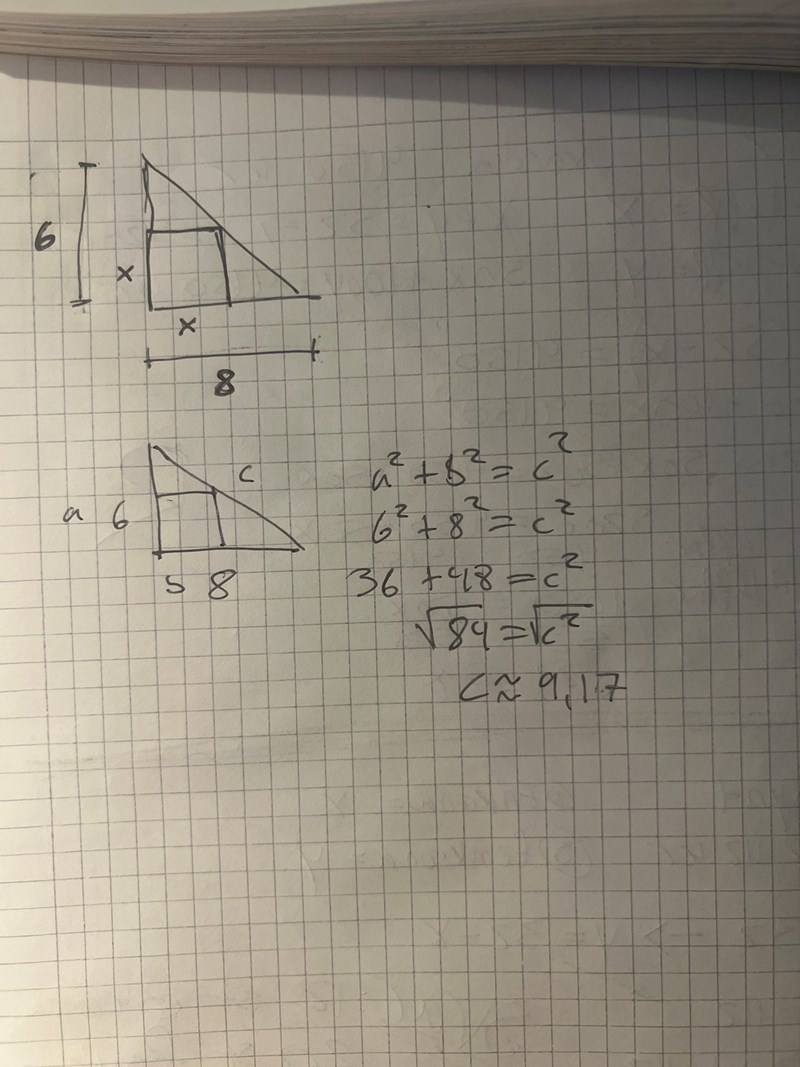 6
x
x
8
c
a 6
b 8
a² + b² = c²
6² + 8² = c²
36 + 48 = c²
√84 = √c²
c ≈ 9,17